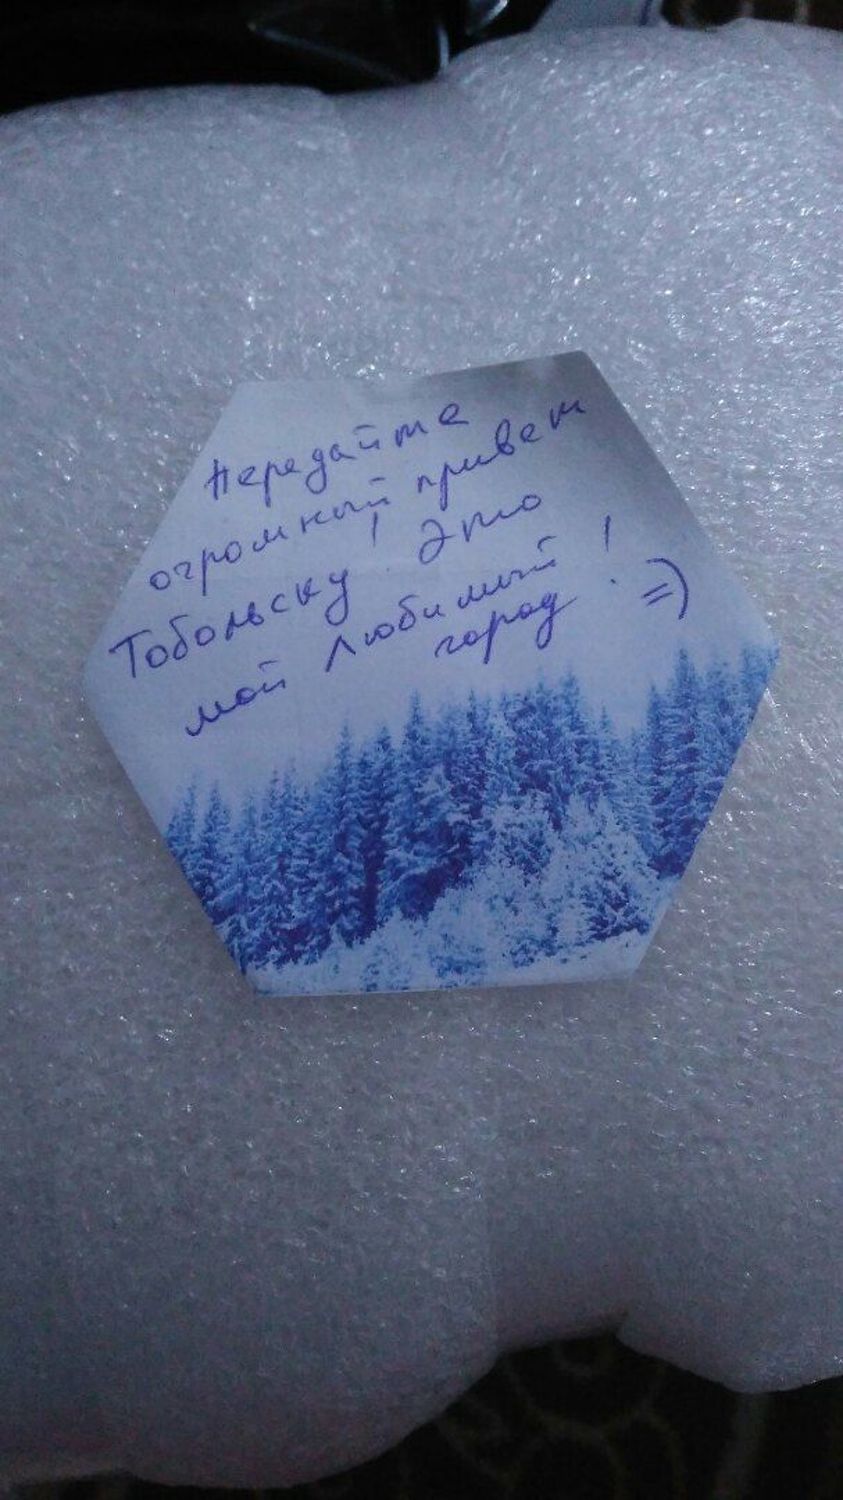 Передайте
огромный привет
Тобольску! Это
мой любимый
город! =)